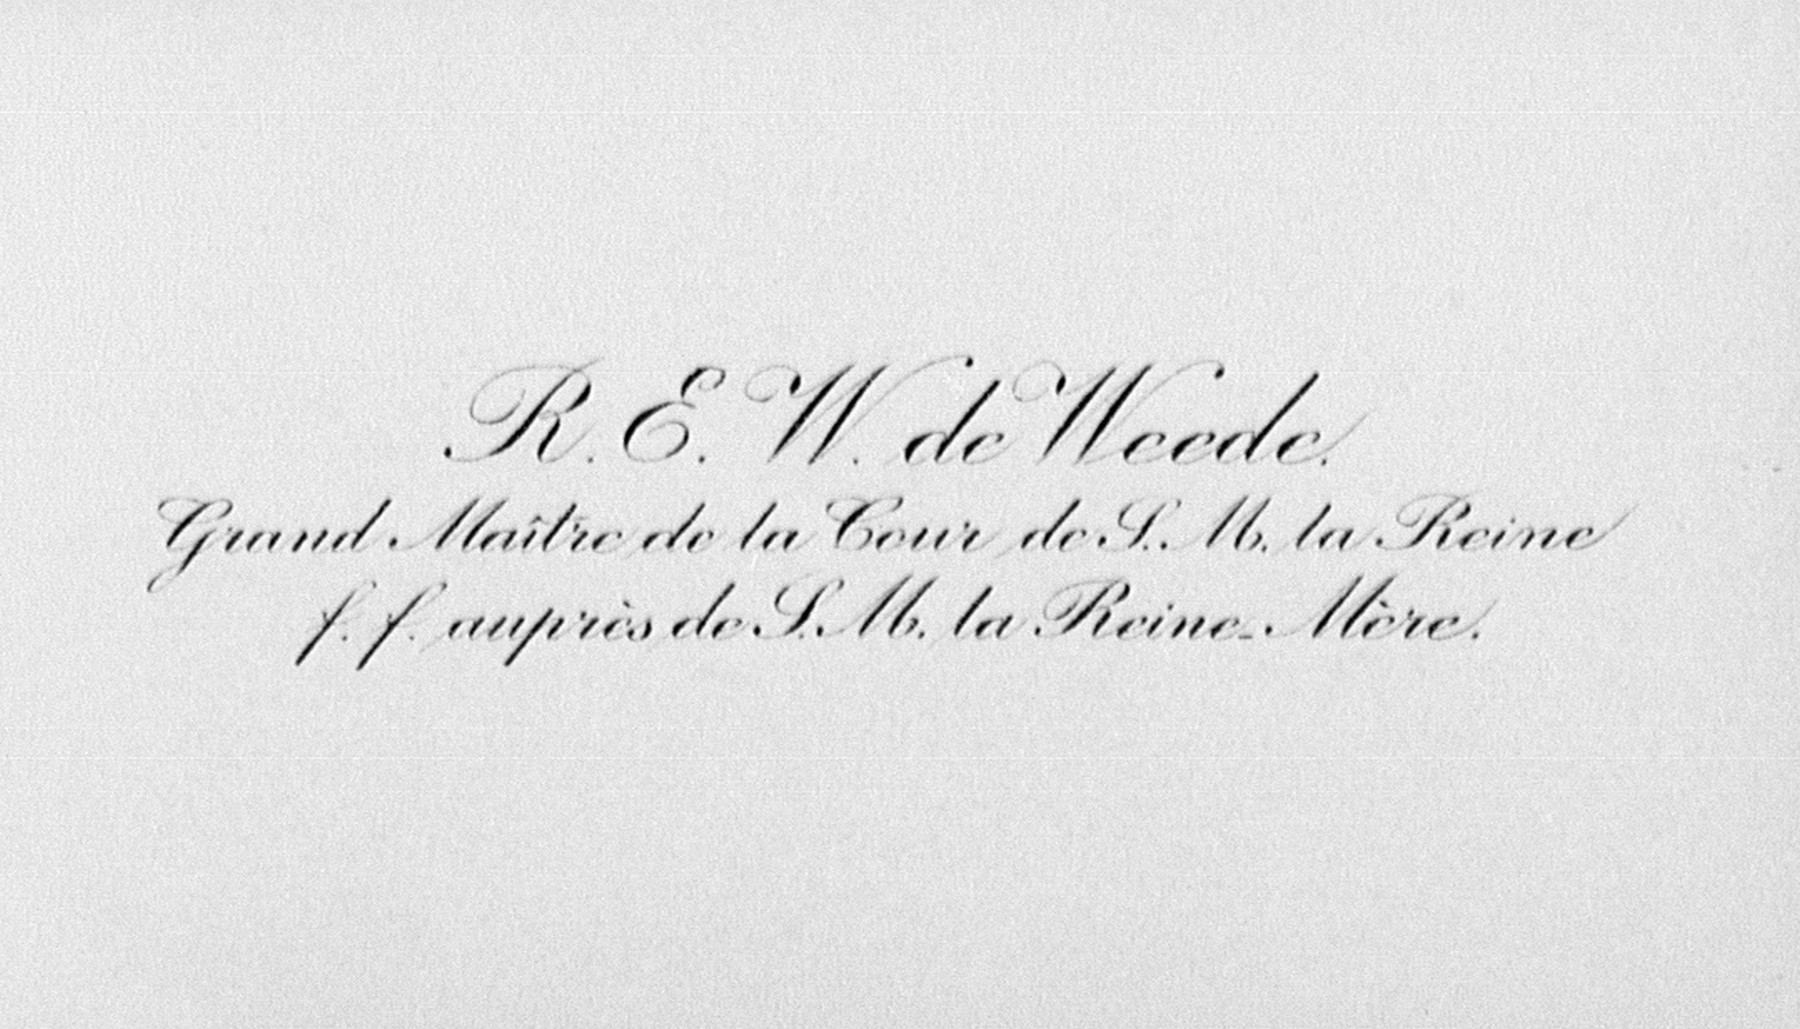 R. E. W. de Weede.
Grand Maître de la Cour de S. M. la Reine
f. f. auprès de S. M. la Reine-Mère.